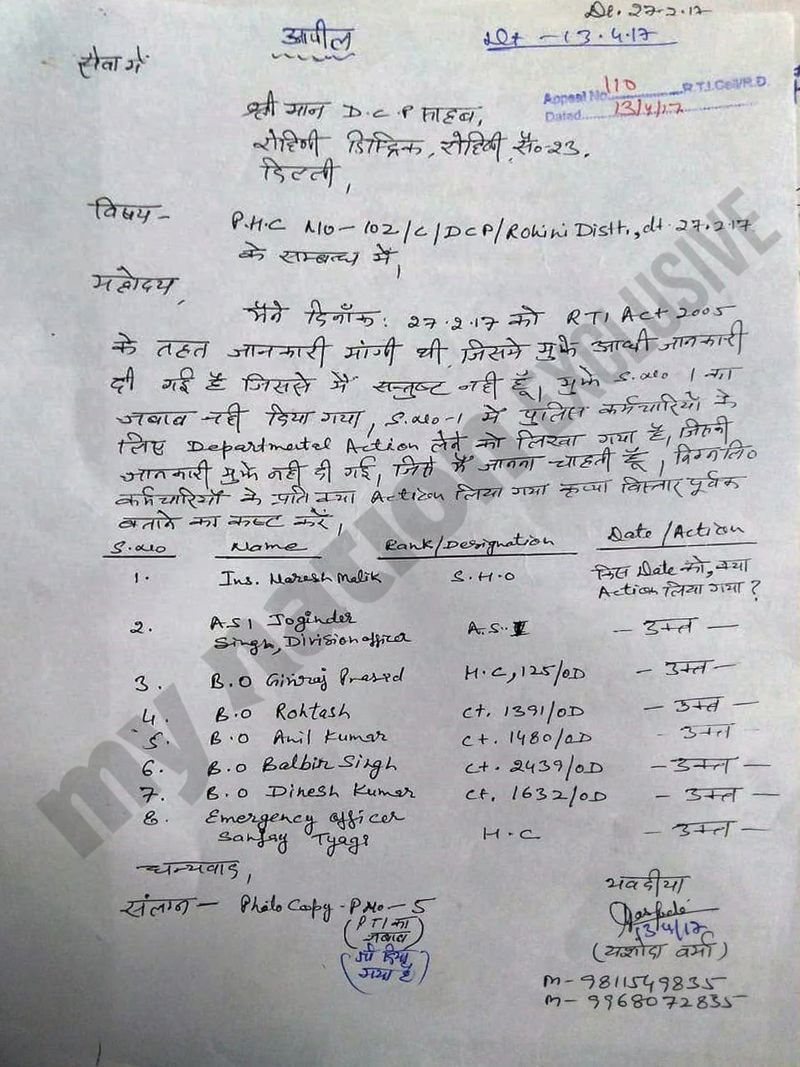 Dt. 27-2-17
अपील
Dt - 13.4.17
सेवा में
Appeal No. 110 R.T.I. Cell/R.D.
Dated 13/4/17
श्री मान D.C.P साहब,
रोहिणी डिस्ट्रिक, रोहिणी, सै०-23,
दिल्ली,
विषय - P.H.C NO-102/C/DCP/Rohini Distt., dt. 27.2.17
के सम्बन्ध में,
महोदय,
मैंने दिनाँक: 27.2.17 को RTI Act 2005
के तहत जानकारी मांगी थी, जिसमे मुझे आधी जानकारी
दी गई है जिससे मैं सन्तुष्ट नहीं हूँ, मुझे S.No 1 का
जवाब नही दिया गया, S.No-1 में पुलिस कर्मचारियों के
लिए Departmental Action लेने को लिखा गया है, जिसकी
जानकारी मुझे नहीं दी गई, जिसे मैं जानना चाहती हूँ, निम्नलि०
कर्मचारियों के प्रति क्या Action लिया गया कृप्या विस्तार पूर्वक
बताने का कष्ट करें,
S.No Name Rank/Designation Date/Action
1. Ins. Naresh Malik S.H.O किस Date को, क्या
Action लिया गया?
2. ASI Joginder
Singh, Division officer A.S.I - उक्त -
3. B.O Giriraj Prasad H.C, 125/OD - उक्त -
4. B.O Rohtash Ct. 1391/OD - उक्त -
5. B.O Anil Kumar Ct. 1480/OD - उक्त -
6. B.O Balbir Singh Ct. 2439/OD - उक्त -
7. B.O Dinesh Kumar Ct. 1632/OD - उक्त -
8. Emergency officer
Sanjay Tyagi H.C - उक्त -
धन्यवाद,
संलग्न - Photo Copy - P.No - 5
(RTI का
जवाब
जो दिया
गया है)
भवदीया
13/4/17
(यशोदा वर्मा)
M- 9811549835
M- 9968072835
my nation EXCLUSIVE